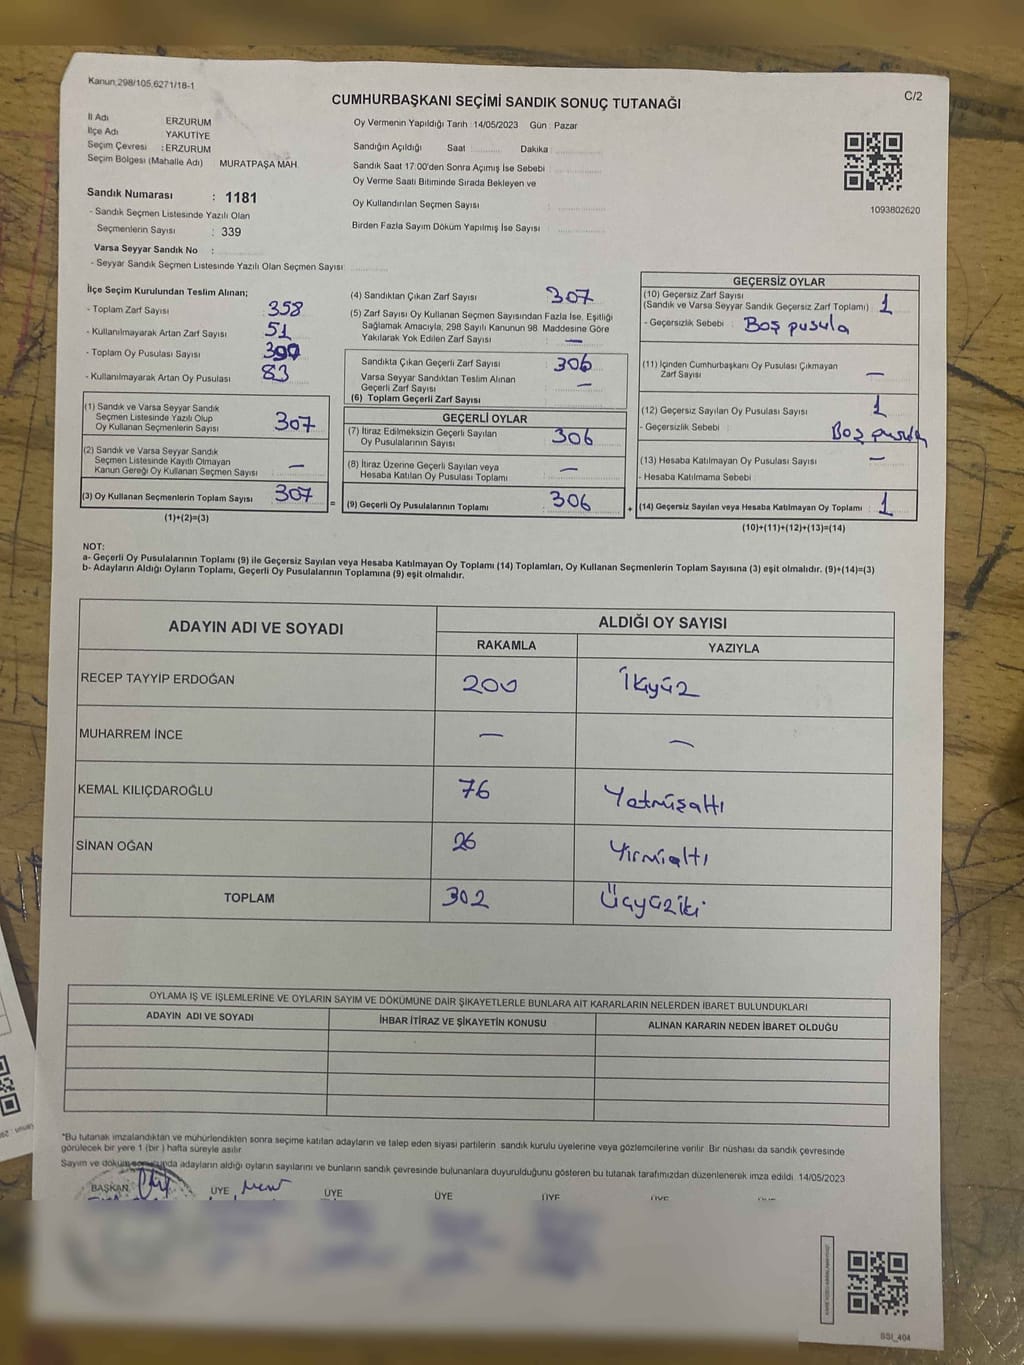 Kanun;298/105,6271/18-1
C/2
CUMHURBAŞKANI SEÇİMİ SANDIK SONUÇ TUTANAĞI
İl Adı ERZURUM
İlçe Adı YAKUTİYE
Seçim Çevresi : ERZURUM
Seçim Bölgesi (Mahalle Adı) MURATPAŞA MAH.
Sandık Numarası : 1181
- Sandık Seçmen Listesinde Yazılı Olan
Seçmenlerin Sayısı : 339
Varsa Seyyar Sandık No :
- Seyyar Sandık Seçmen Listesinde Yazılı Olan Seçmen Sayısı:
Oy Vermenin Yapıldığı Tarih :14/05/2023 Gün : Pazar
Sandığın Açıldığı Saat Dakika
Sandık Saat 17:00'den Sonra Açımış İse Sebebi
Oy Verme Saati Bitiminde Sırada Bekleyen ve
Oy Kullandırılan Seçmen Sayısı
Birden Fazla Sayım Döküm Yapılmış İse Sayısı
1093802620
İlçe Seçim Kurulundan Teslim Alınan;
- Toplam Zarf Sayısı 358
- Kullanılmayarak Artan Zarf Sayısı 51
- Toplam Oy Pusulası Sayısı
- Kullanılmayarak Artan Oy Pusulası 83
(1) Sandık ve Varsa Seyyar Sandık
Seçmen Listesinde Yazılı Olup
Oy Kullanan Seçmenlerin Sayısı 307
(2) Sandık ve Varsa Seyyar Sandık
Seçmen Listesinde Kayıtlı Olmayan
Kanun Gereği Oy Kullanan Seçmen Sayısı —
(3) Oy Kullanan Seçmenlerin Toplam Sayısı 307 =
(1)+(2)=(3)
(4) Sandıktan Çıkan Zarf Sayısı 307
(5) Zarf Sayısı Oy Kullanan Seçmen Sayısından Fazla İse, Eşitliği
Sağlamak Amacıyla, 298 Sayılı Kanunun 98. Maddesine Göre
Yakılarak Yok Edilen Zarf Sayısı —
Sandıkta Çıkan Geçerli Zarf Sayısı 306
Varsa Seyyar Sandıktan Teslim Alınan
Geçerli Zarf Sayısı —
(6) Toplam Geçerli Zarf Sayısı
GEÇERLİ OYLAR
(7) İtiraz Edilmeksizin Geçerli Sayılan
Oy Pusulalarının Sayısı 306
(8) İtiraz Üzerine Geçerli Sayılan veya
Hesaba Katılan Oy Pusulası Toplamı —
(9) Geçerli Oy Pusulalarının Toplamı : 306 +
GEÇERSİZ OYLAR
(10) Geçersiz Zarf Sayısı
(Sandık ve Varsa Seyyar Sandık Geçersiz Zarf Toplamı) : 1
- Geçersizlik Sebebi : Boş pusula
(11) İçinden Cumhurbaşkanı Oy Pusulası Çıkmayan
Zarf Sayısı —
(12) Geçersiz Sayılan Oy Pusulası Sayısı 1
- Geçersizlik Sebebi : Boş pusula
(13) Hesaba Katılmayan Oy Pusulası Sayısı —
- Hesaba Katılmama Sebebi
(14) Geçersiz Sayılan veya Hesaba Katılmayan Oy Toplamı : 1
(10)+(11)+(12)+(13)=(14)
NOT:
a- Geçerli Oy Pusulalarının Toplamı (9) ile Geçersiz Sayılan veya Hesaba Katılmayan Oy Toplamı (14) Toplamları, Oy Kullanan Seçmenlerin Toplam Sayısına (3) eşit olmalıdır. (9)+(14)=(3)
b- Adayların Aldığı Oyların Toplamı, Geçerli Oy Pusulalarının Toplamına (9) eşit olmalıdır.
ADAYIN ADI VE SOYADI ALDIĞI OY SAYISI
RAKAMLA YAZIYLA
RECEP TAYYİP ERDOĞAN 200 İkiyüz
MUHARREM İNCE — —
KEMAL KILIÇDAROĞLU 76 Yetmişaltı
SİNAN OĞAN 26 Yirmialtı
TOPLAM 302 Üçyüziki
OYLAMA İŞ VE İŞLEMLERİNE VE OYLARIN SAYIM VE DÖKÜMÜNE DAİR ŞİKAYETLERLE BUNLARA AİT KARARLARIN NELERDEN İBARET BULUNDUKLARI
ADAYIN ADI VE SOYADI İHBAR İTİRAZ VE ŞİKAYETİN KONUSU ALINAN KARARIN NEDEN İBARET OLDUĞU
*Bu tutanak imzalandıktan ve mühürlendikten sonra seçime katılan adayların ve talep eden siyasi partilerin sandık kurulu üyelerine veya gözlemcilerine verilir. Bir nüshası da sandık çevresinde
görülecek bir yere 1 (bir ) hafta süreyle asılır.
Sayım ve döküm sonucunda adayların aldığı oyların sayılarını ve bunların sandık çevresinde bulunanlara duyurulduğunu gösteren bu tutanak tarafımızdan düzenlenerek imza edildi. 14/05/2023
BAŞKAN ÜYE ÜYE ÜYE ÜYE ÜYE ÜYE
SSI_404